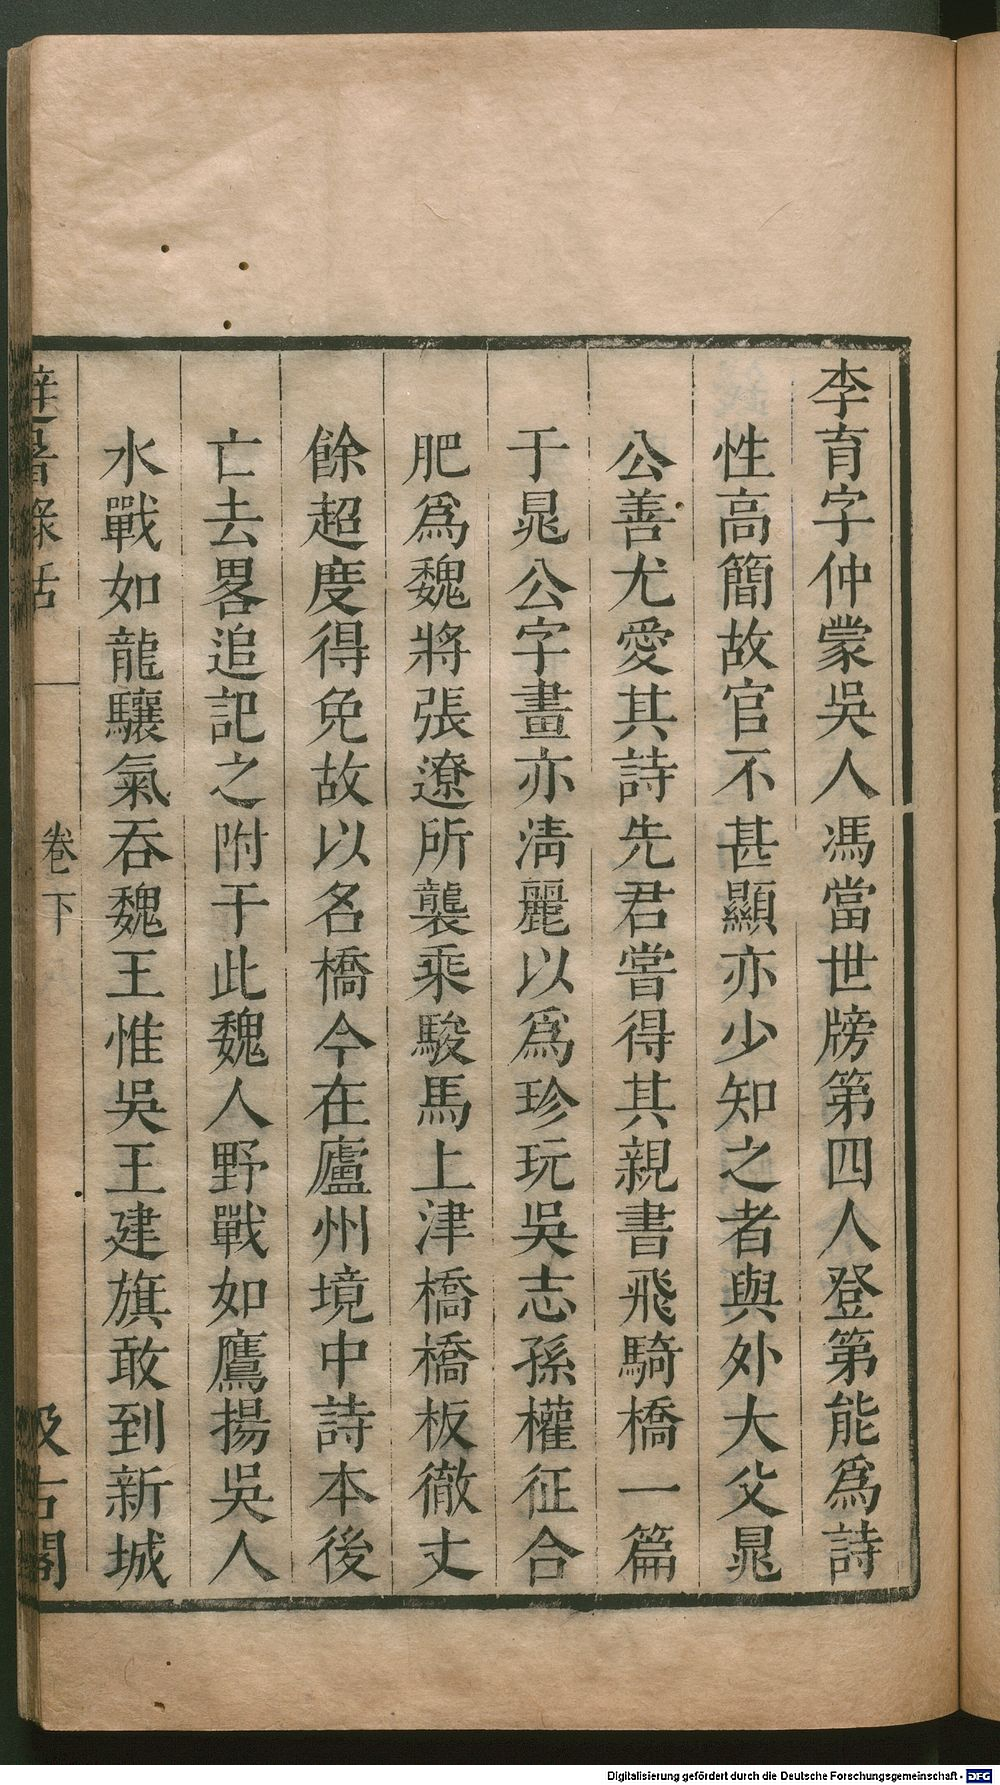 李育字仲蒙吳人馮當世牓第四人登第能爲詩
性高簡故官不甚顯亦少知之者與外大父晁
公善尤愛其詩先君嘗得其親書飛騎橋一篇
于晁公字畫亦淸麗以爲珍玩吳志孫權征合
肥爲魏將張遼所襲乘駿馬上津橋橋板徹丈
餘超度得免故以名橋今在廬州境中詩本後
亡去畧追記之附于此魏人野戰如鷹揚吳人
水戰如龍驤氣吞魏王惟吳王建旗敢到新城
避暑錄話 卷下 汲古閣
Digitalisierung gefördert durch die Deutsche Forschungsgemeinschaft - DFG